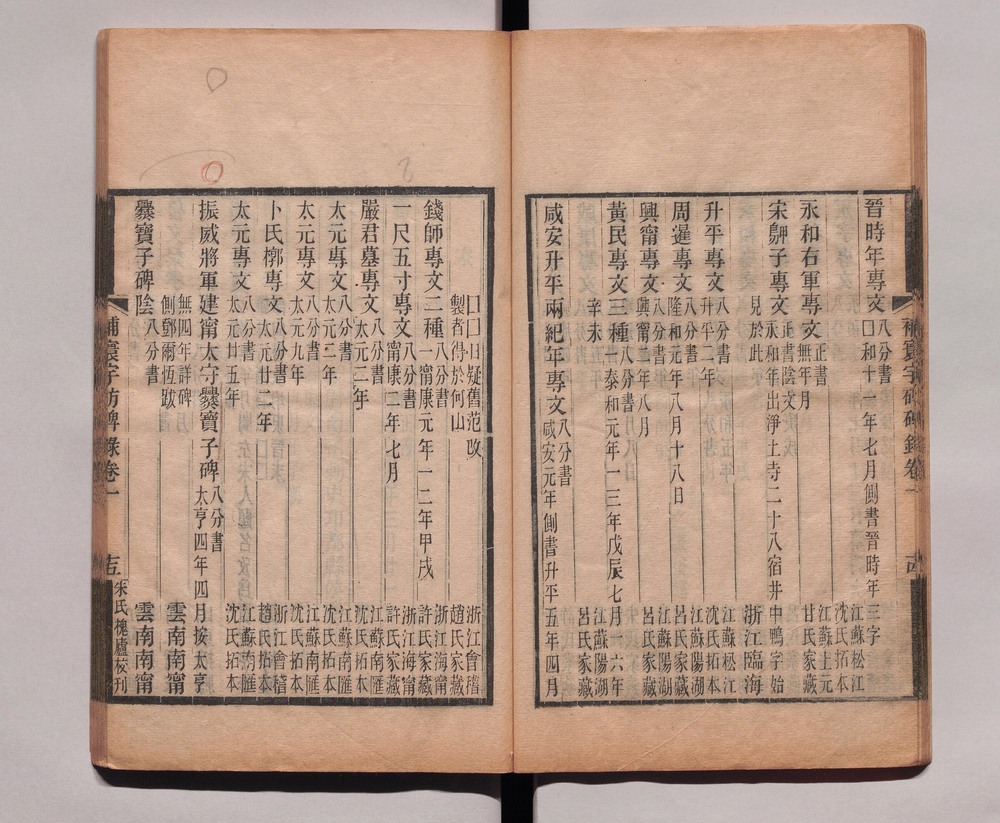 晉時年專文 八分書 □和十一年七月側書晉時年三字
江蘇松江沈氏拓本
永和右軍專文 正書 無年月
江蘇上元甘氏家藏
宋鼿子專文 正書陰文 永和年出淨土寺二十八宿井中鴨字始見於此
浙江臨海
升平專文 八分書 升平二年
江蘇松江沈氏拓本
周暹專文 八分書 隆和元年八月十八日
江蘇陽湖呂氏家藏
興甯專文 八分書 興甯二年八月
江蘇陽湖呂氏家藏
黃民專文三種 八分書 一泰和元年一三年戊辰七月一六年辛未
江蘇陽湖呂氏家藏
咸安升平兩紀年專文 八分書 咸安元年側書升平五年四月
補寰宇訪碑錄卷一
□□日疑舊范改製者得於何山
浙江會稽趙氏家藏
錢師專文二種 八分書 一甯康元年一二年甲戌
浙江海甯許氏家藏
一尺五寸專文 八分書 甯康二年七月
浙江海甯許氏家藏
嚴君墓專文 八分書 太元二年
江蘇南匯沈氏拓本
太元專文 八分書 太元二年
江蘇南匯沈氏拓本
太元專文 八分書 太元九年
江蘇南匯沈氏拓本
卜氏槨專文 八分書 太元廿二年
浙江會稽趙氏拓本
太元專文 八分書 太元廿五年
江蘇南匯沈氏拓本
振威將軍建甯太守爨寶子碑 八分書 太亨四年四月按太亨無四年詳碑側鄧爾恆跋
雲南南甯
爨寶子碑陰 八分書
雲南南甯
補寰宇訪碑錄卷一
朱氏槐廬校刊